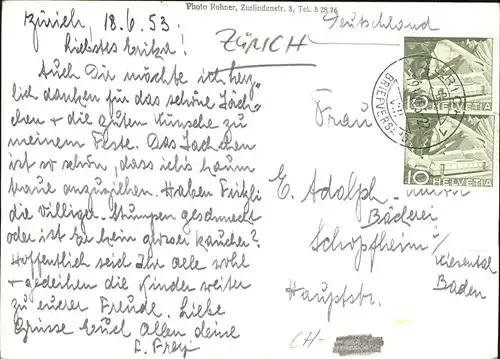 Photo Rohner, Zurlindenstr. 3, Tel.
Zürich, 18.6.53.
liebstes
Auch Dir möchte ich herz-
lich danken für das schöne Jäck-
chen + die guten Wünsche zu
meinem Feste. Das Jäckchen
ist so schön, dass ich's kaum
traue anzuziehen. Haben Fritzli
die Villiger-Stumpen geschmeckt
oder ist er kein grosser Raucher?
Hoffentlich seid Ihr alle wohl
+ gedeihen die Kinder weiter
zu eurer Freude. Liebe
Grüsse Euch allen deine
Frey
ZÜRICH
Deutschland
Frau
E. Adolph
Bäckerei
Schopfheim /
Wiesental
Baden
Hauptstr.
CH-
BRIEFVERSAND
10 HELVETIA
10 HELVETIA